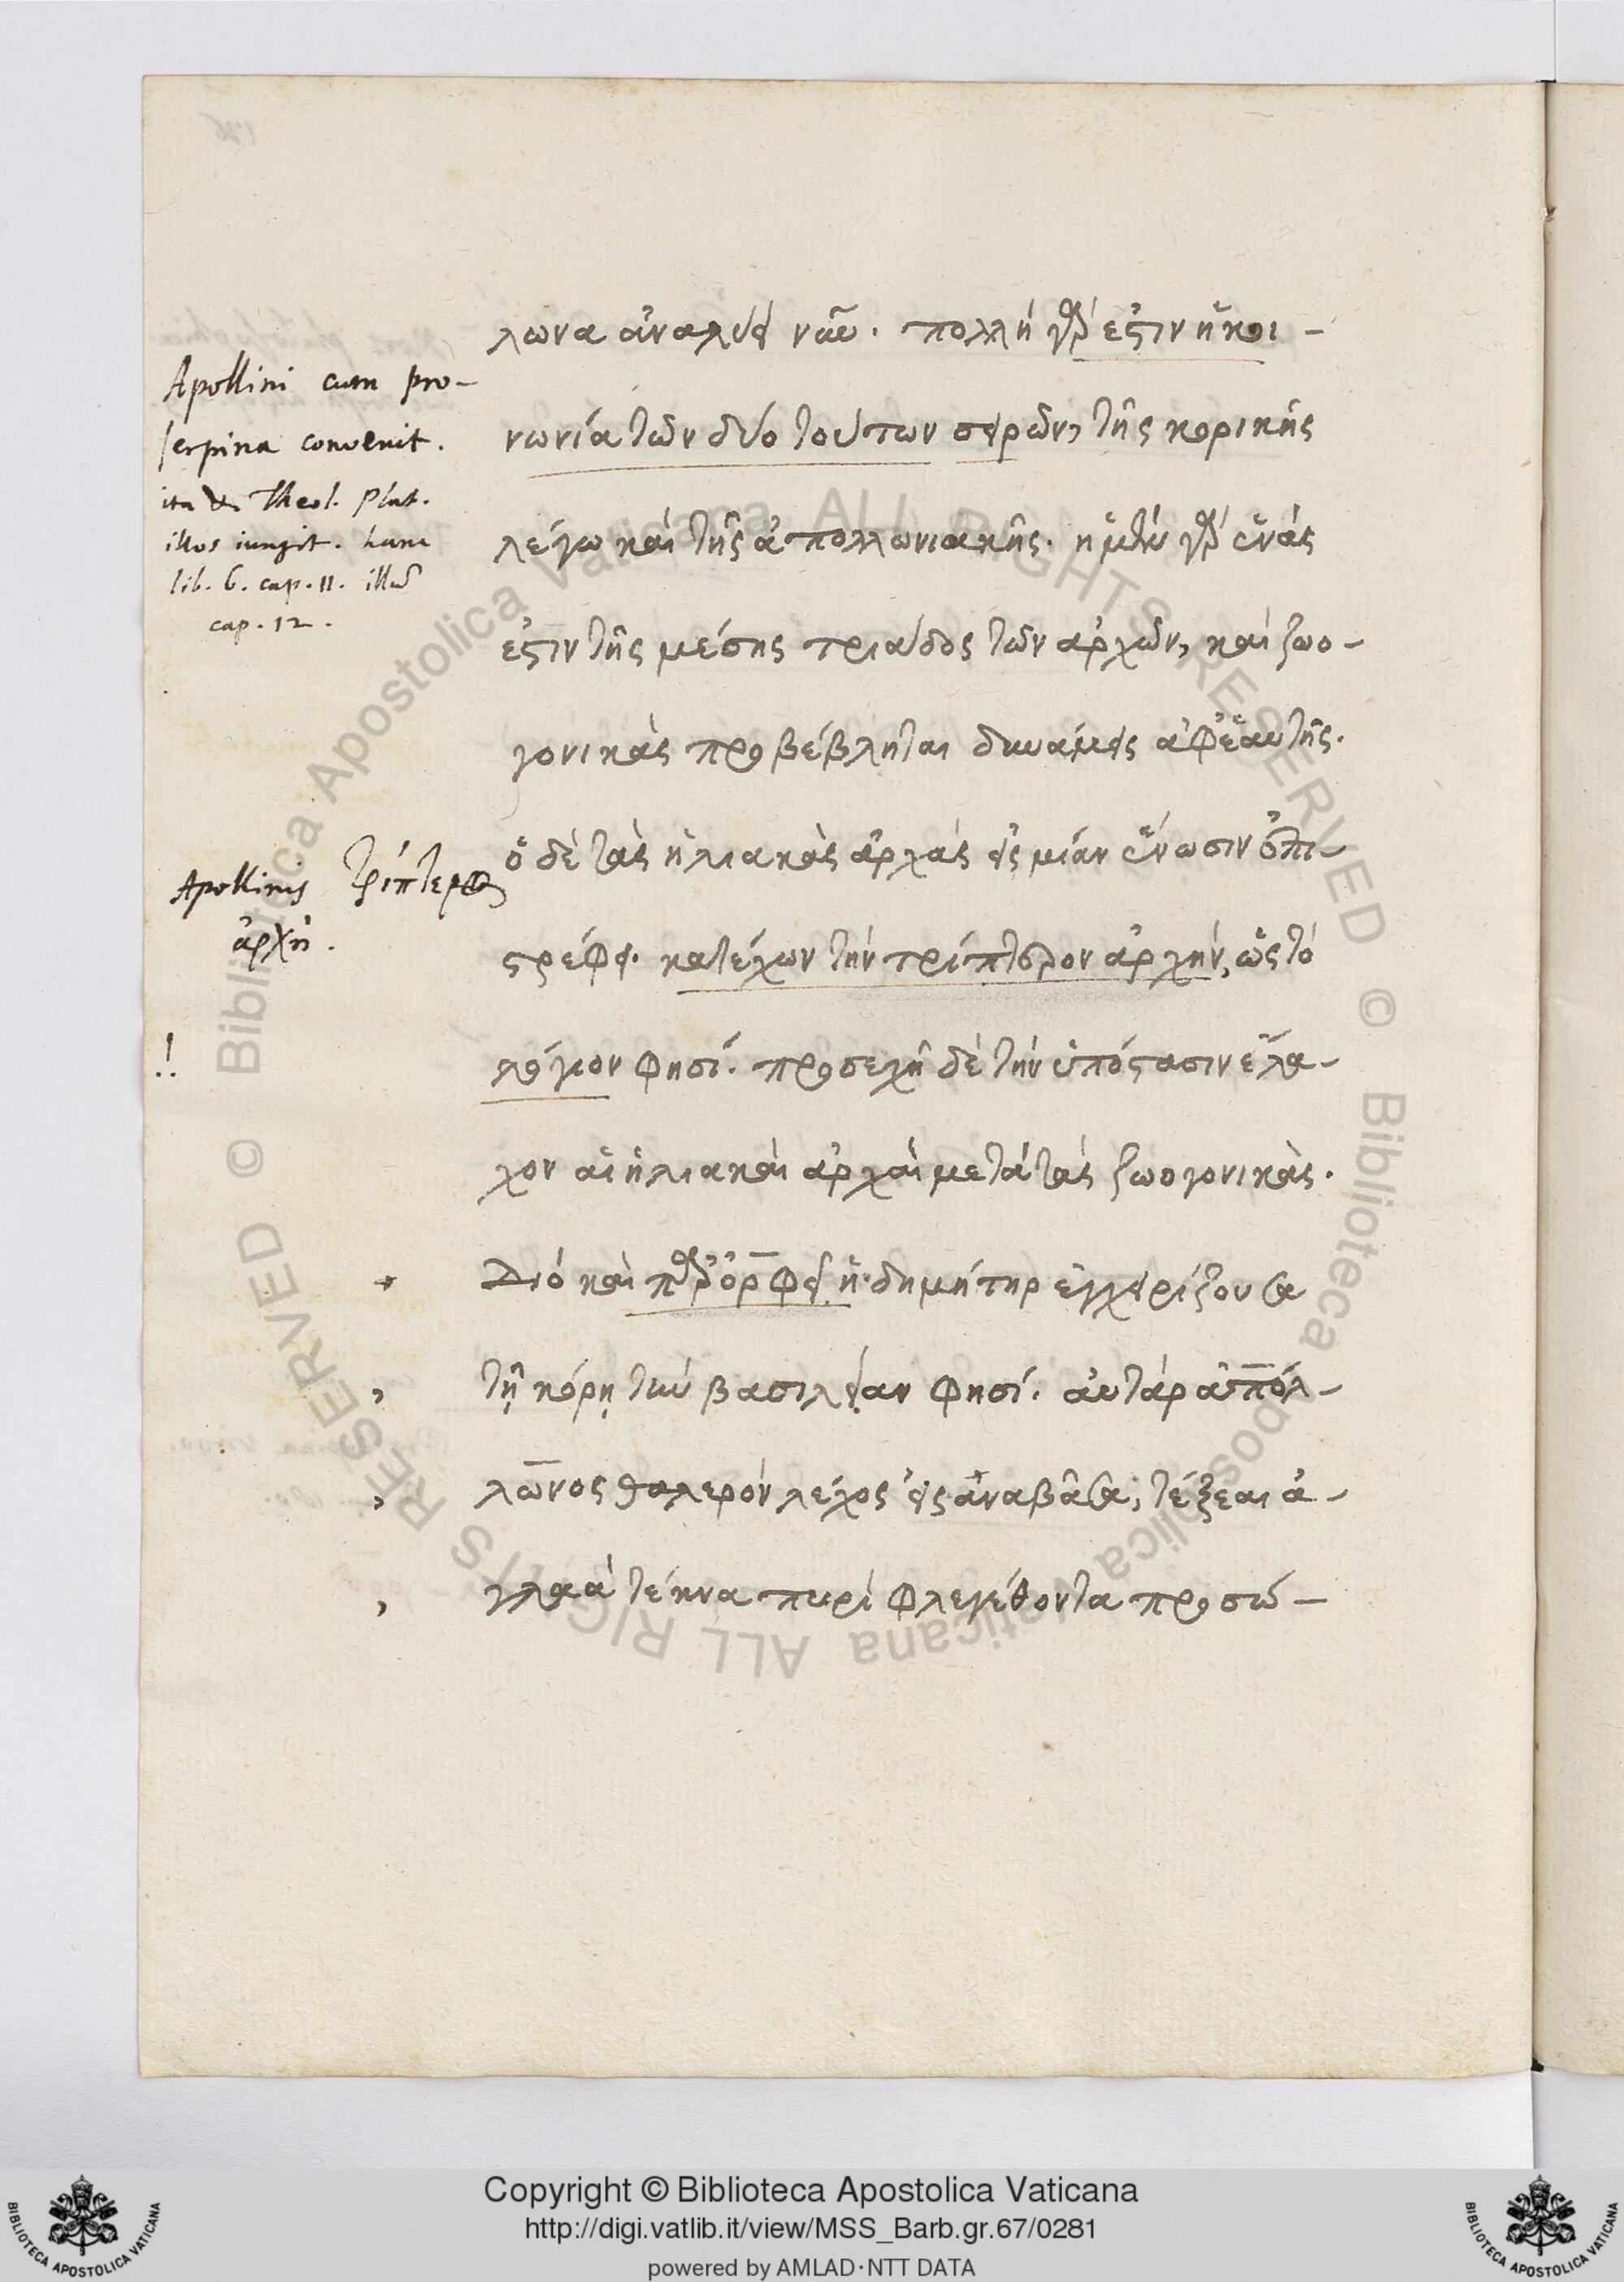 λωνα ἀναλύει νῦν. πολλὴ γάρ ἐστιν ἡ κοι-
νωνία τῶν δύο τούτων σειρῶν, τῆς κορικῆς
λέγω καὶ τῆς ἀπολλωνιακῆς. ἡ μὲν γὰρ ἑνάς
ἐστιν τῆς μέσης τριάδος τῶν ἀρχῶν, καὶ ζωο-
γονικὰς προβέβληται δυνάμεις ἀφ' ἑαυτῆς.
ὁ δὲ τὰς ἡλιακὰς ἀρχὰς εἰς μίαν ἕνωσιν ἐπι-
στρέφει. κατέχων τὴν τρίπτερον ἀρχήν, ὥς τὸ
λόγιον φησί. προσεχῆ δὲ τὴν ὑπόστασιν ἔλα-
χον αἱ ἡλιακαὶ ἀρχαὶ μετὰ τὰς ζωογονικὰς.
Διὸ καὶ παρ' ὀρφεῖ ἡ δημήτηρ ἐγχειρίζουσα
τῇ κόρῃ τὴν βασιλείαν φησί. αὐτὰρ ἀπόλ-
λωνος θαλερὸν λέχος εἰς ἀναβᾶσα, τέξεαι ἀ-
γλαὰ τέκνα πυρὶ φλεγέθοντα προσώ-
Apollini cum pro-
serpina convenit.
ita & Theol. Plat.
illos iungit. hanc
lib. 6. cap. 11. illud
cap. 12.
Apollinis τρίπτερος
ἀρχή.
!!
Biblioteca Apostolica Vaticana ALL RIGHTS RESERVED ©
Biblioteca Apostolica Vaticana ALL RIGHTS RESERVED ©
Copyright © Biblioteca Apostolica Vaticana
http://digi.vatlib.it/view/MSS_Barb.gr.67/0281
powered by AMLAD·NTT DATA
BIBLIOTECA APOSTOLICA VATICANA
BIBLIOTECA APOSTOLICA VATICANA